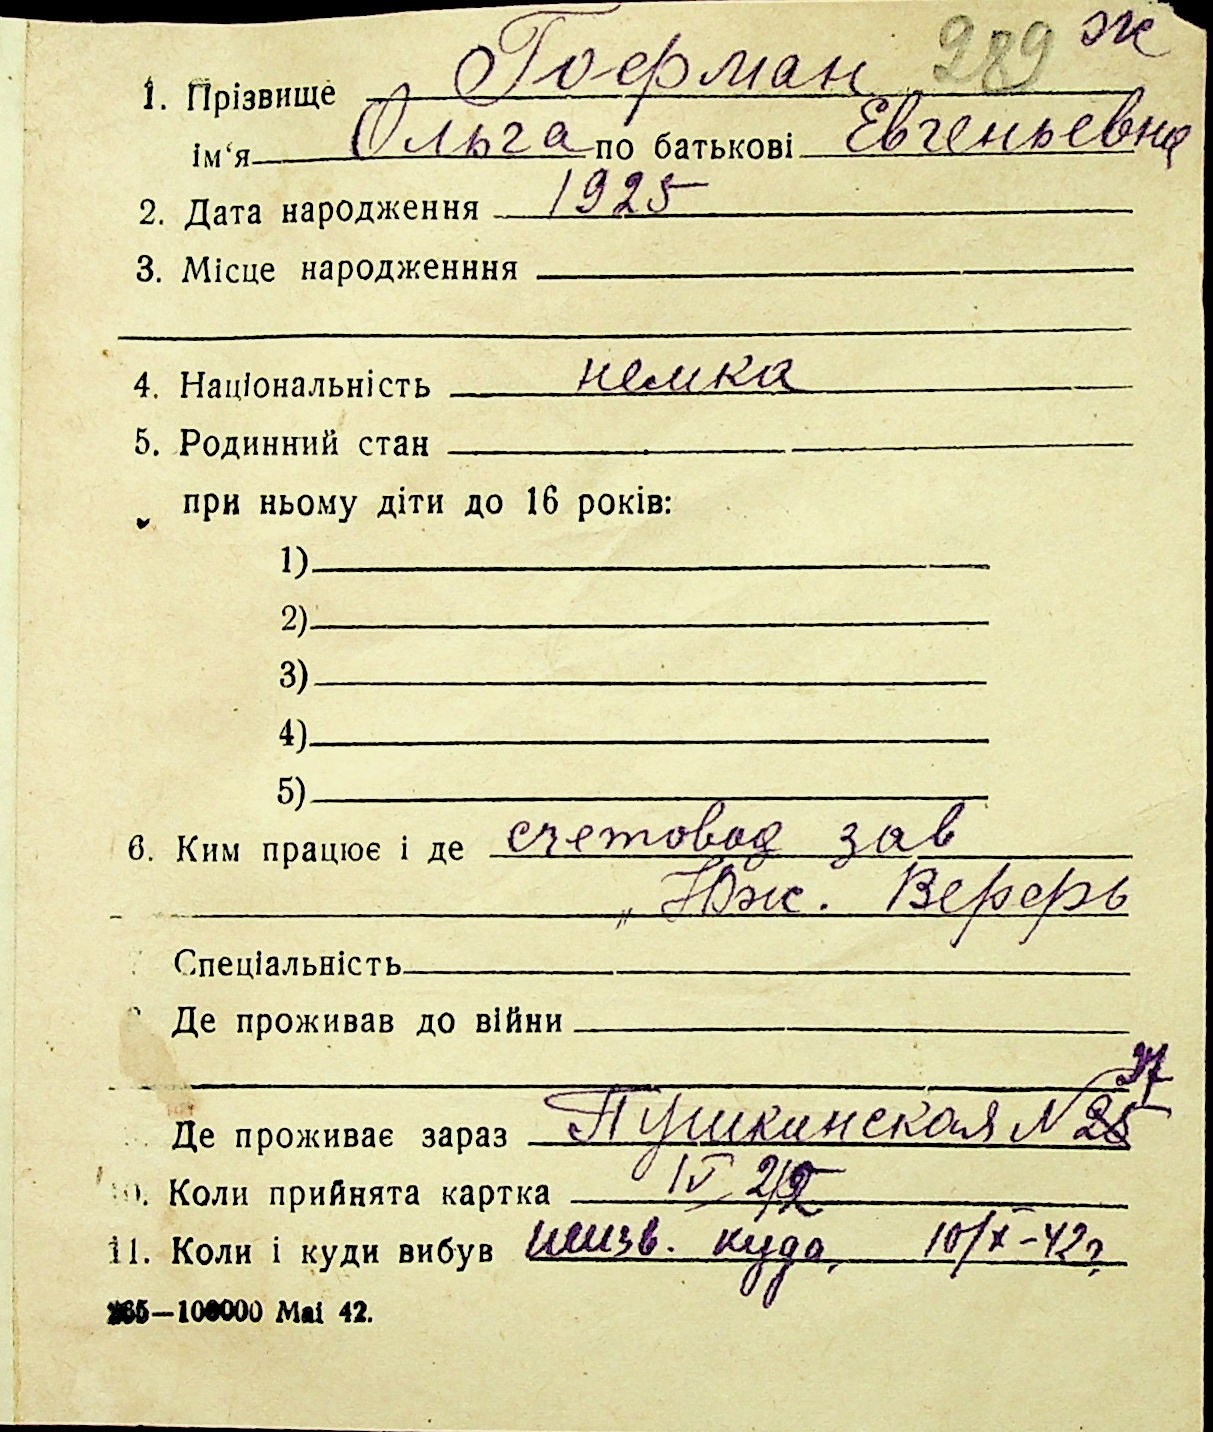 289 ж
1. Прізвище Гофман
ім'я Ольга по батькові Евгеньевна
2. Дата народження 1925
3. Місце народженння
4. Національність немка
5. Родинний стан
при ньому діти до 16 років:
1)
2)
3)
4)
5)
6. Ким працює і де счетовод зав
„ Юж. Верфь
Спеціальність
Де проживав до війни
37
Де проживає зараз Пушкинская №
10. Коли прийнята картка
11. Коли і куди вибув неизв. куда, 10/X-42г
265—100000 Маі 42.